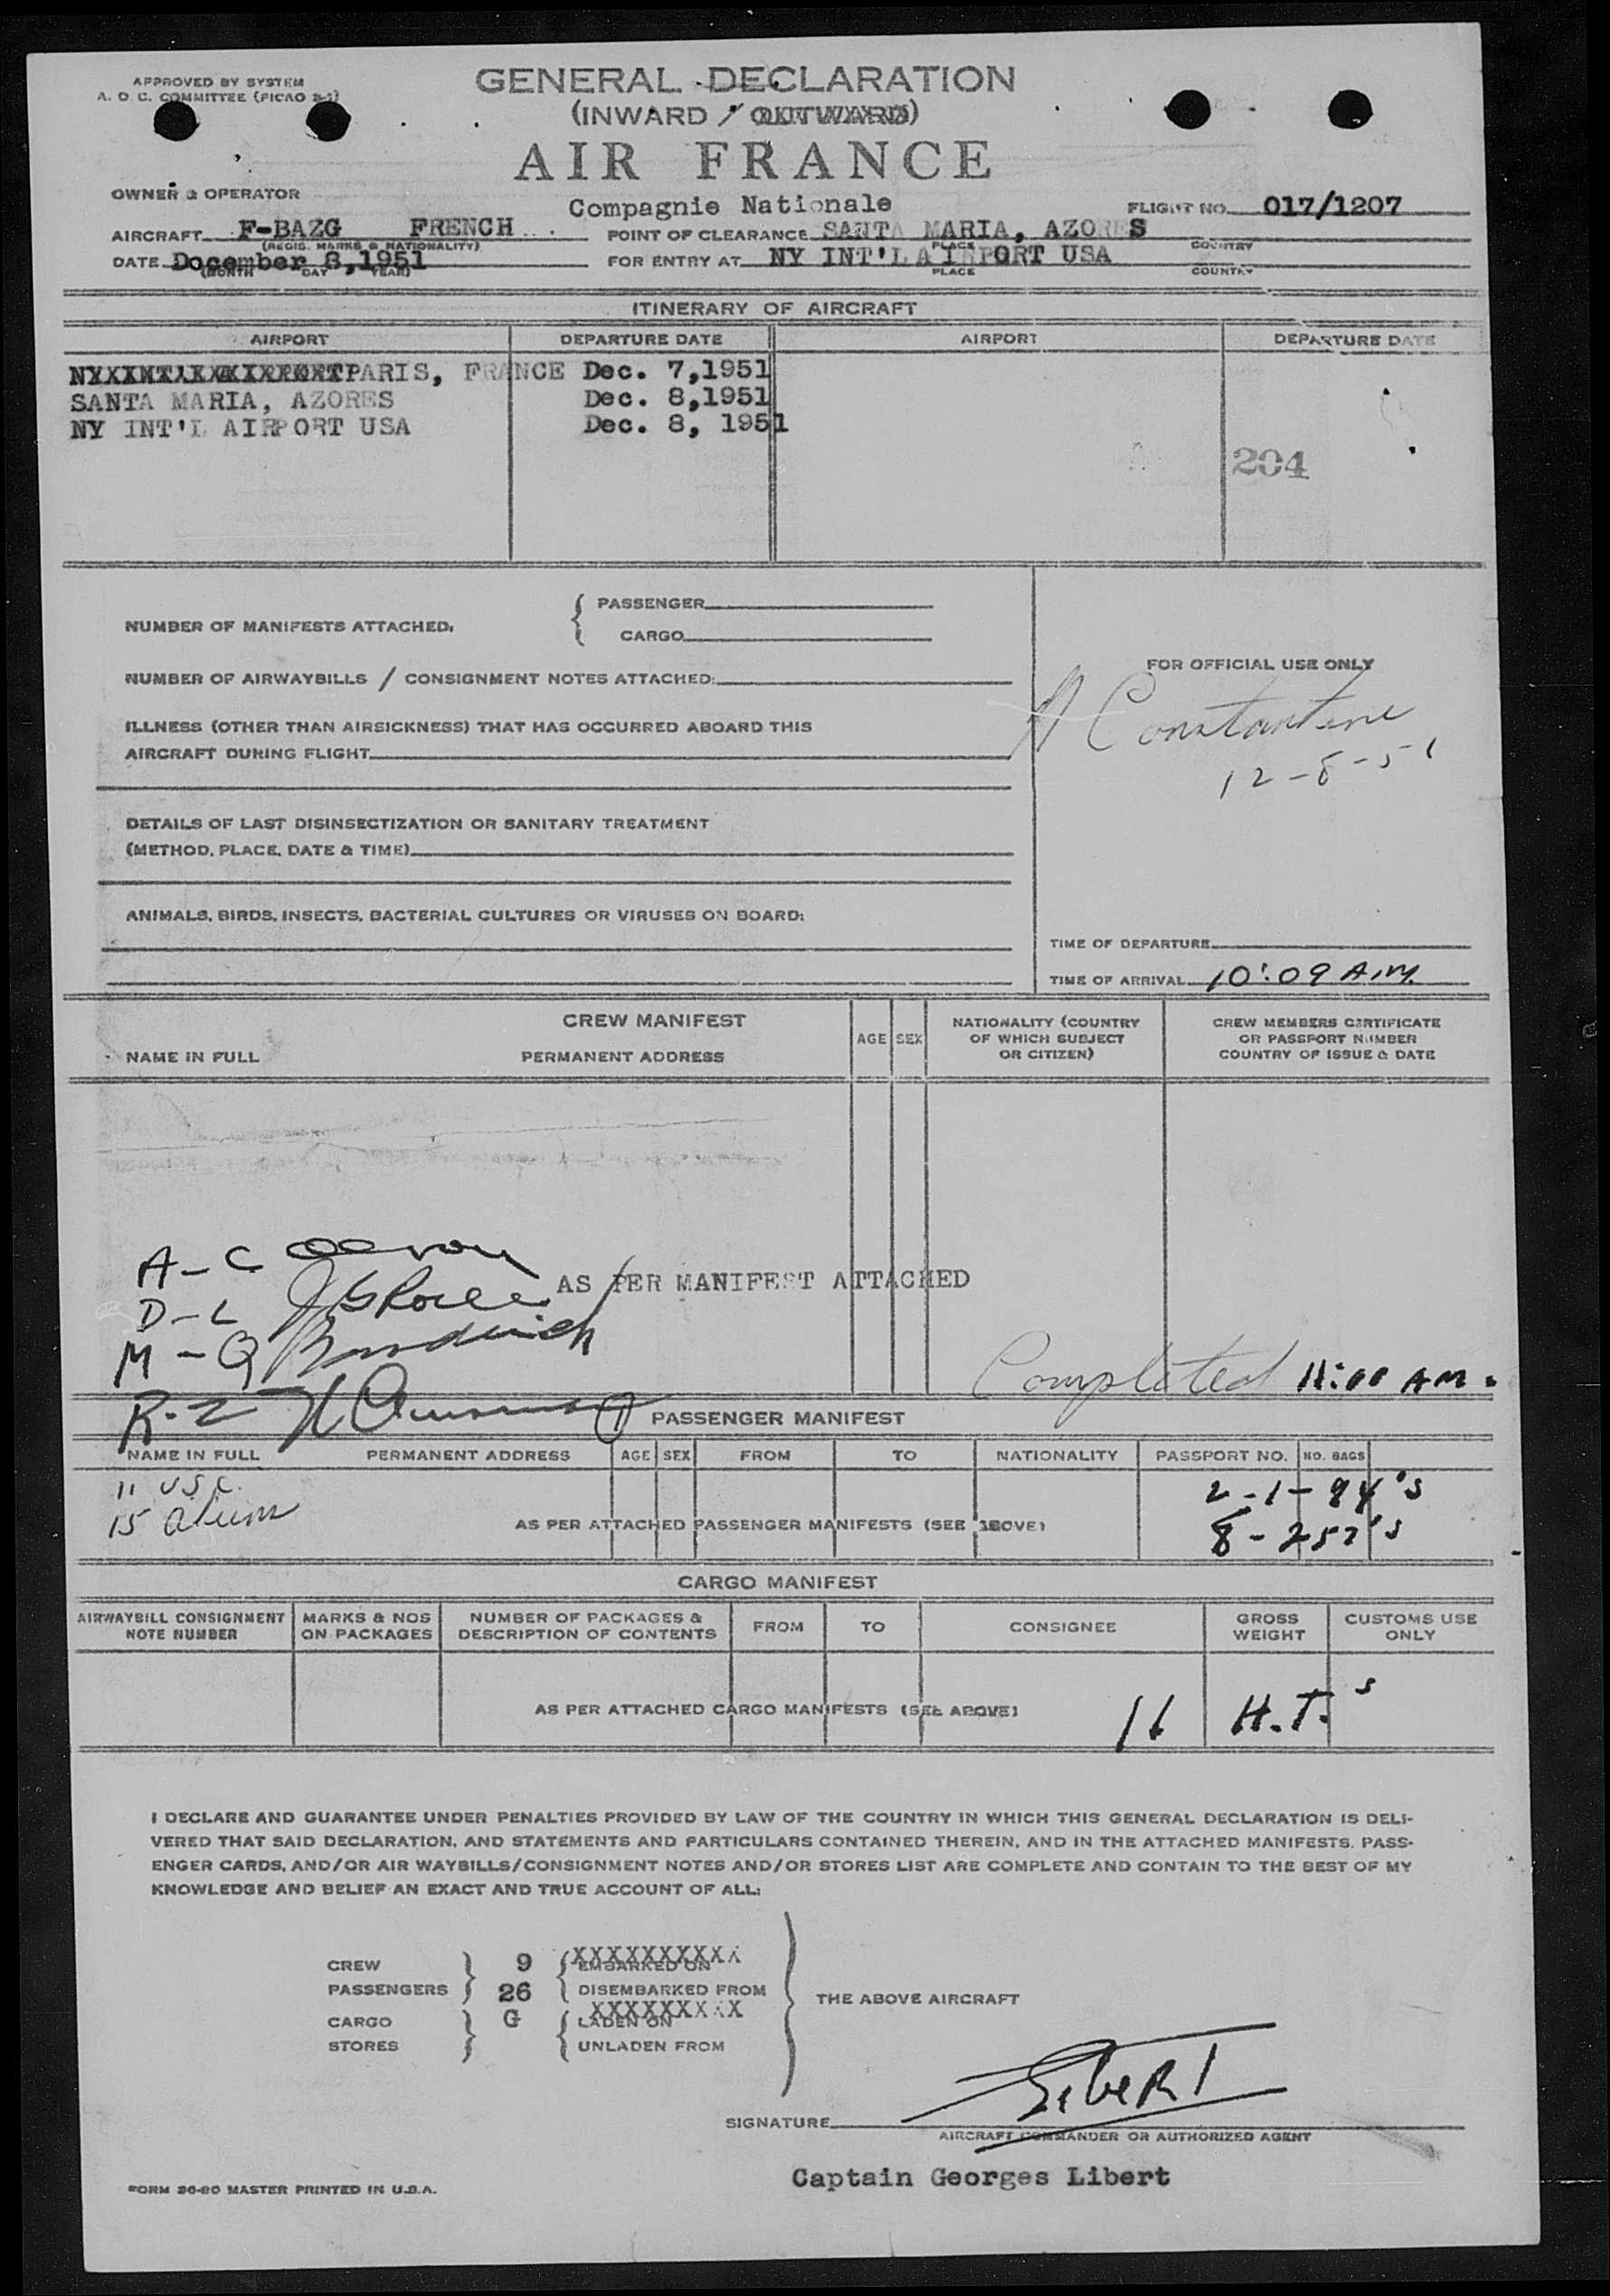 APPROVED BY SYSTEM
A. D. C. COMMITTEE (PICAO 2-1)
GENERAL DECLARATION
(INWARD / OUTWARD)
AIR FRANCE
OWNER & OPERATOR
Compagnie Nationale
FLIGHT NO. 017/1207
AIRCRAFT F-BAZG FRENCH
(REGIS. MARKS & NATIONALITY)
POINT OF CLEARANCE SANTA MARIA, AZORES
PLACE COUNTRY
DATE December 8,1951
(MONTH DAY YEAR)
FOR ENTRY AT NY INT'L AIRPORT USA
PLACE COUNTRY
ITINERARY OF AIRCRAFT
AIRPORT DEPARTURE DATE AIRPORT DEPARTURE DATE
PARIS, FRANCE Dec. 7,1951
SANTA MARIA, AZORES Dec. 8,1951
NY INT'L AIRPORT USA Dec. 8, 1951
204
NUMBER OF MANIFESTS ATTACHED.
PASSENGER
CARGO
NUMBER OF AIRWAYBILLS / CONSIGNMENT NOTES ATTACHED:
ILLNESS (OTHER THAN AIRSICKNESS) THAT HAS OCCURRED ABOARD THIS
AIRCRAFT DURING FLIGHT
DETAILS OF LAST DISINSECTIZATION OR SANITARY TREATMENT
(METHOD, PLACE, DATE & TIME)
ANIMALS, BIRDS, INSECTS, BACTERIAL CULTURES OR VIRUSES ON BOARD:
FOR OFFICIAL USE ONLY
A Constantine
12-8-51
TIME OF DEPARTURE
TIME OF ARRIVAL 10:09 A.M.
CREW MANIFEST
NAME IN FULL PERMANENT ADDRESS
AGE SEX
NATIONALITY (COUNTRY
OF WHICH SUBJECT
OR CITIZEN)
CREW MEMBERS CERTIFICATE
OR PASSPORT NUMBER
COUNTRY OF ISSUE & DATE
A-C
D-L
AS PER MANIFEST ATTACHED
M-Q
Completed 11:00 AM.
R-Z
PASSENGER MANIFEST
NAME IN FULL PERMANENT ADDRESS AGE SEX FROM TO NATIONALITY PASSPORT NO. NO. BAGS
11 USC.
15 aliens
AS PER ATTACHED PASSENGER MANIFESTS (SEE ABOVE)
2-1-94's
8-257's
CARGO MANIFEST
AIRWAYBILL CONSIGNMENT
NOTE NUMBER
MARKS & NOS
ON PACKAGES
NUMBER OF PACKAGES &
DESCRIPTION OF CONTENTS
FROM TO CONSIGNEE
GROSS
WEIGHT
CUSTOMS USE
ONLY
AS PER ATTACHED CARGO MANIFESTS (SEE ABOVE)
16 H.T.s
I DECLARE AND GUARANTEE UNDER PENALTIES PROVIDED BY LAW OF THE COUNTRY IN WHICH THIS GENERAL DECLARATION IS DELI-
VERED THAT SAID DECLARATION, AND STATEMENTS AND PARTICULARS CONTAINED THEREIN, AND IN THE ATTACHED MANIFESTS. PASS-
ENGER CARDS, AND/OR AIR WAYBILLS/CONSIGNMENT NOTES AND/OR STORES LIST ARE COMPLETE AND CONTAIN TO THE BEST OF MY
KNOWLEDGE AND BELIEF AN EXACT AND TRUE ACCOUNT OF ALL:
CREW 9 XXXXXXXXXX EMBARKED ON
PASSENGERS 26 DISEMBARKED FROM
THE ABOVE AIRCRAFT
CARGO G XXXXXXXXX LADEN ON
STORES UNLADEN FROM
SIGNATURE Libert
AIRCRAFT COMMANDER OR AUTHORIZED AGENT
Captain Georges Libert
FORM 26-20 MASTER PRINTED IN U.S.A.